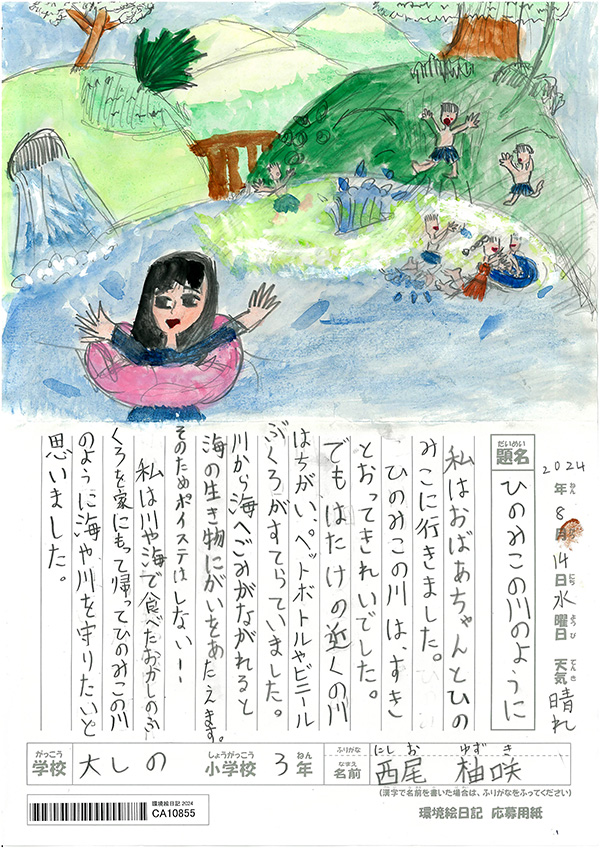 2024年8月14日水曜日 天気晴れ
ねん がつ にち ようび てんき
だいめい
題名
ひのみこの川のように
私はおばあちゃんとひの
みこに行きました。
ひのみこの川は、すき
とおってきれいでした。
でもはたけの近くの川
はちがい、ペットボトルやビニール
ぶくろがすてらていました。
川から海へごみがながれると
海の生き物にがいをあたえます。
そのためポイステはしない!
私は川や海で食べたおかしのふ
くろを家にもって帰ってひのみこの川
のように海や川を守りたいと
思いました。
がっこう しょうがっこう ねん
学校 大しの 小学校 3年
ふりがな にしお ゆずき
なまえ
名前 西尾 柚咲
(漢字で名前を書いた場合は、ふりがなをふってください)
環境絵日記 2024
CA10855
環境絵日記 応募用紙
1